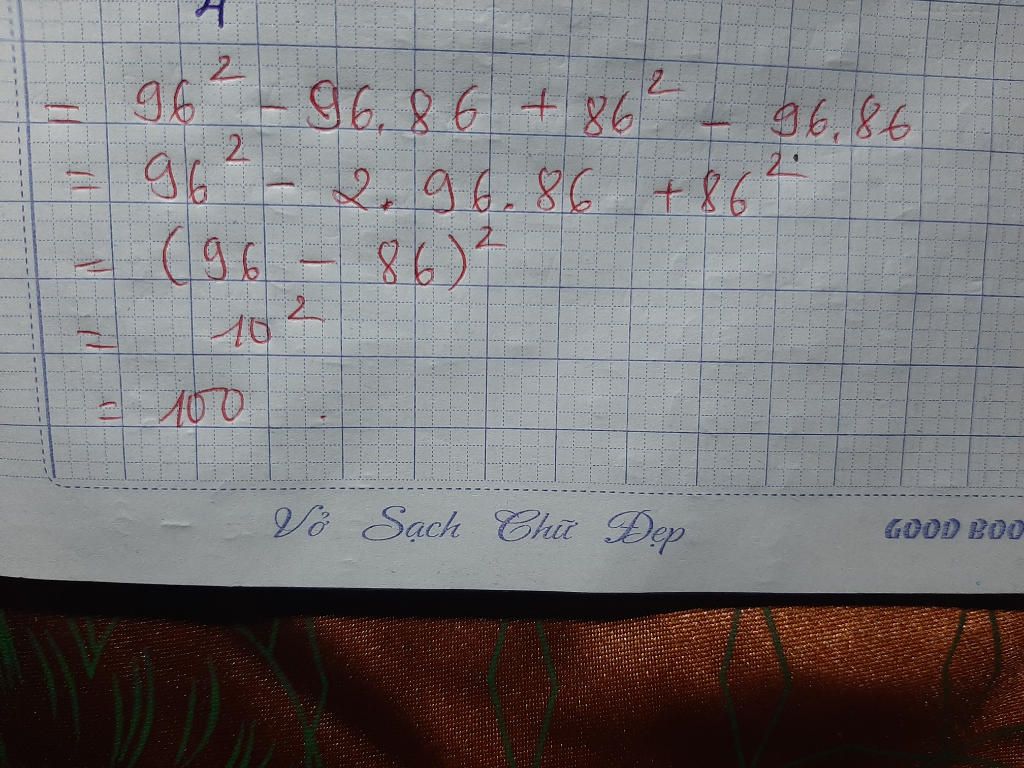 = 96² - 96.86 + 86² - 96.86
= 96² - 2.96.86 + 86²
= (96 - 86)²
= 10²
= 100
Vở Sạch Chữ Đẹp
GOOD BOO